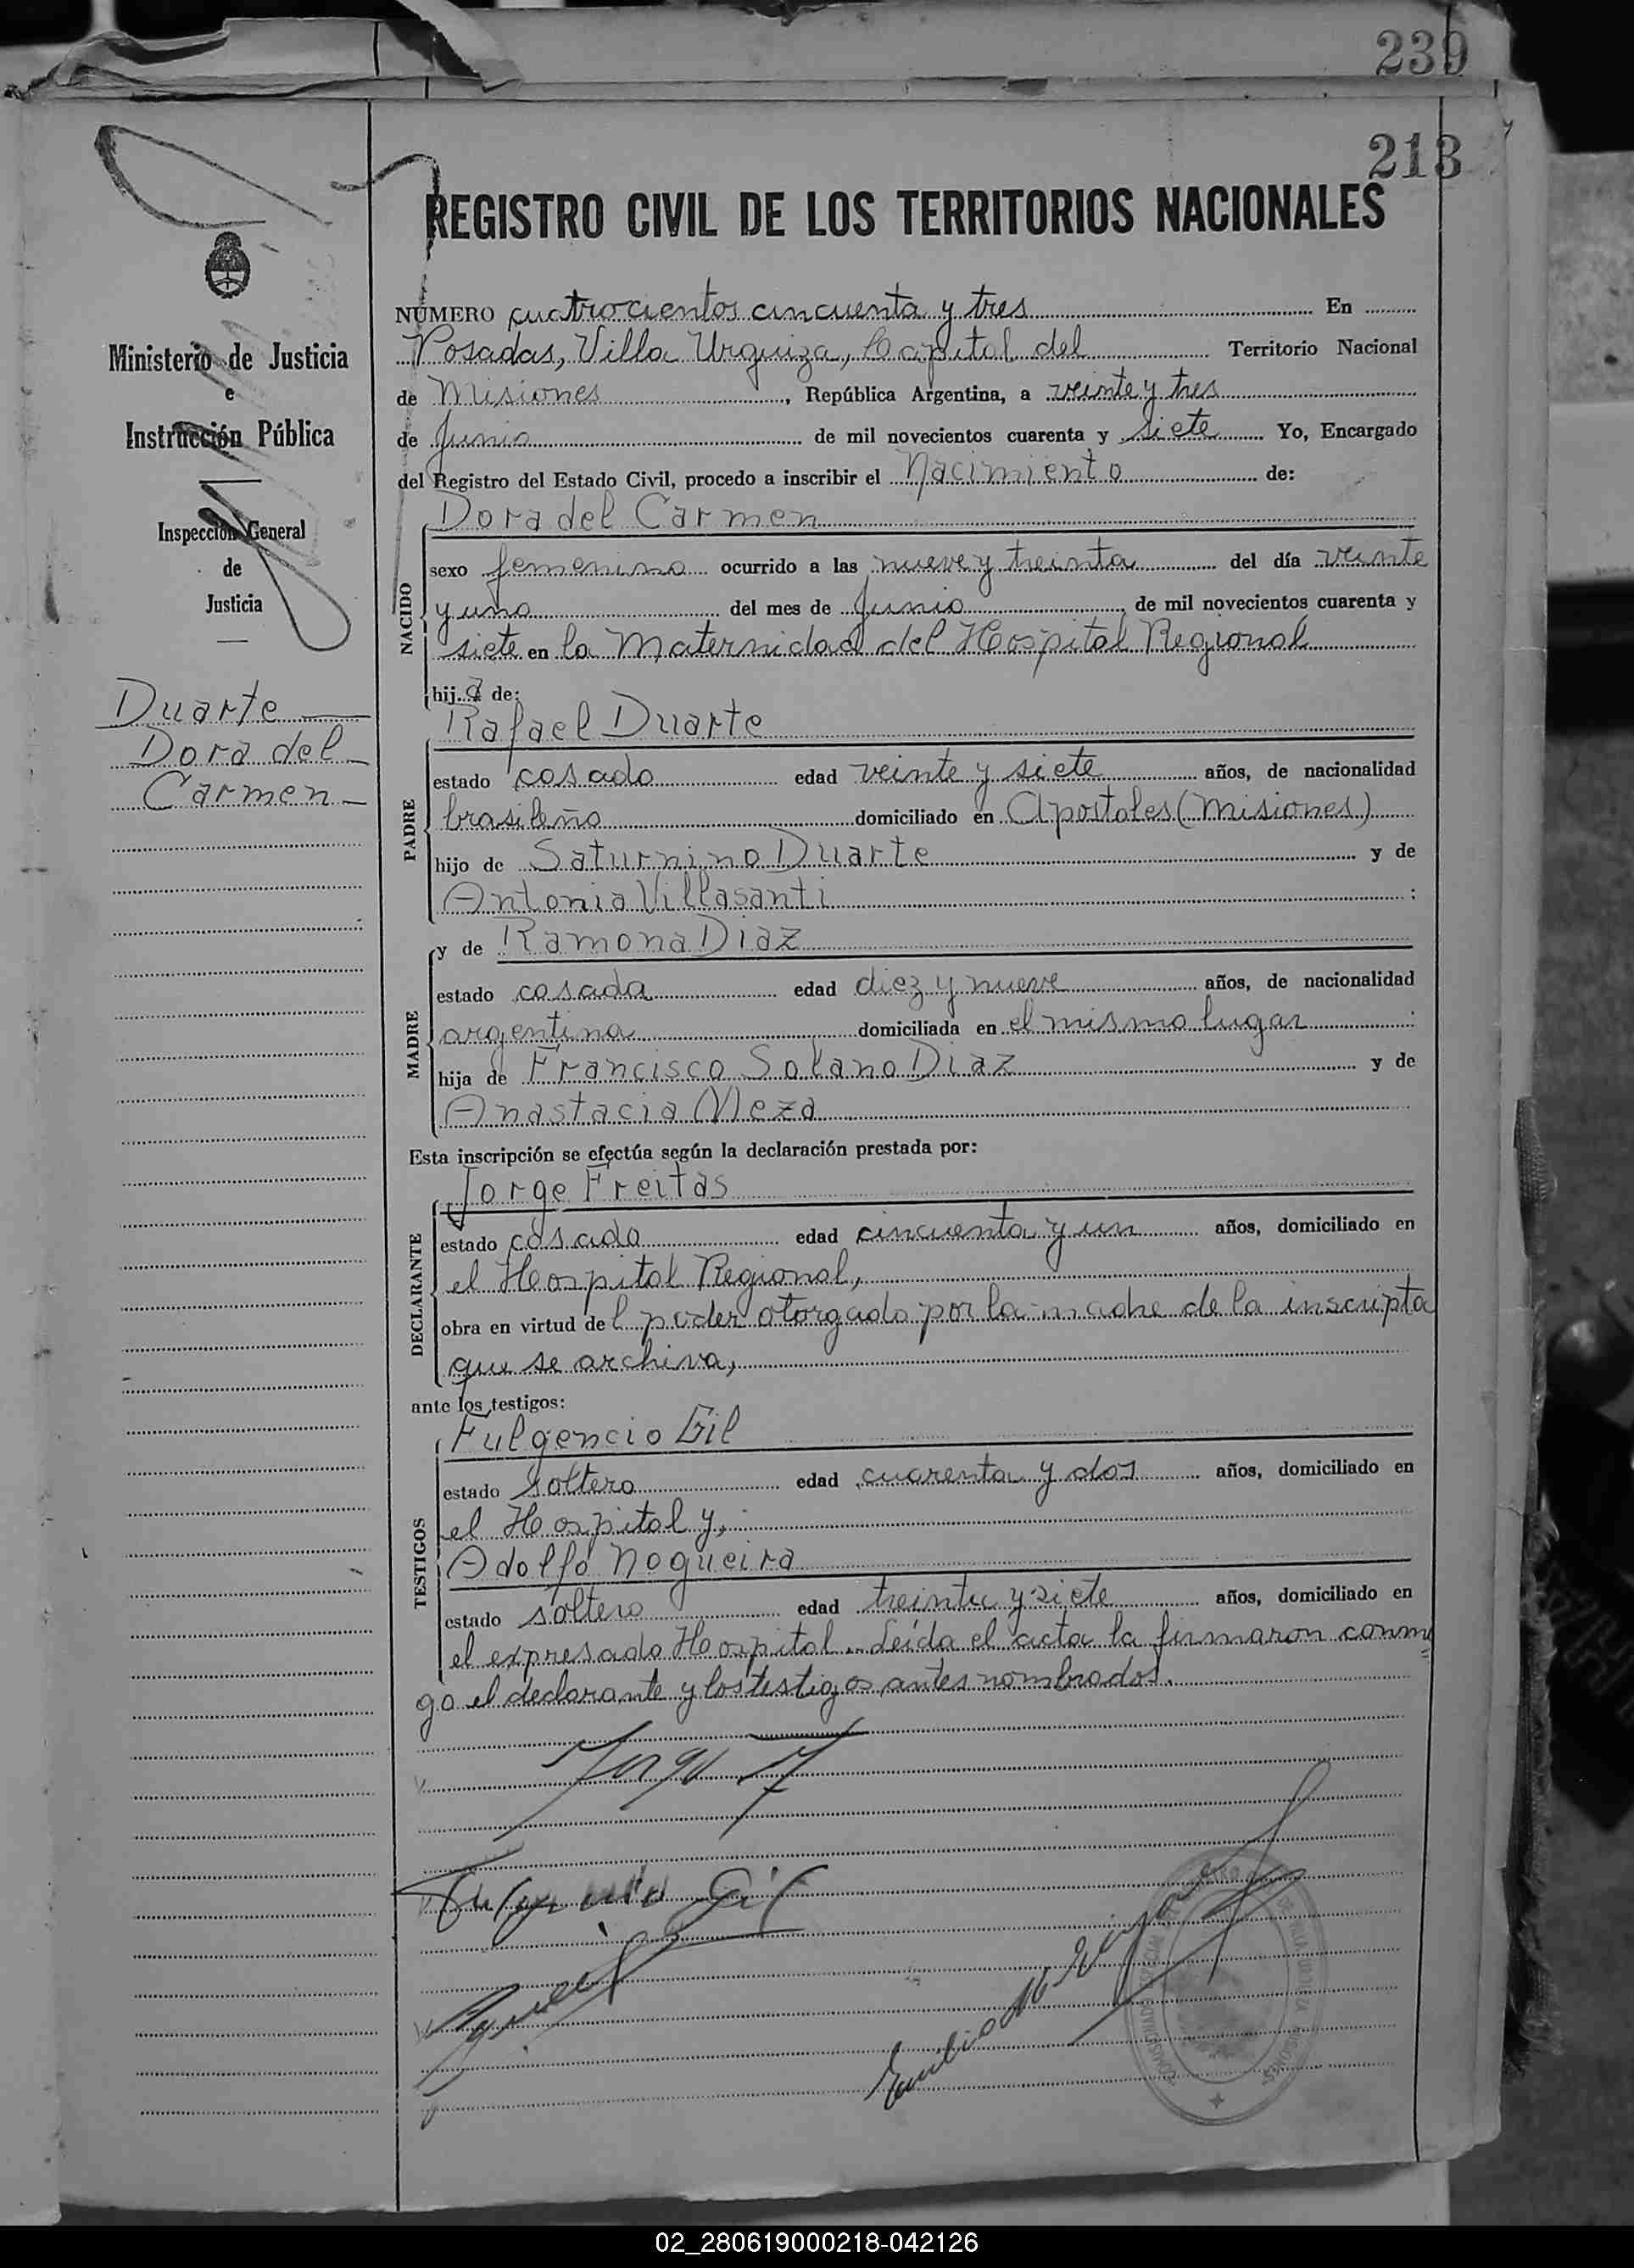 239
213
REGISTRO CIVIL DE LOS TERRITORIOS NACIONALES
Ministerio de Justicia
e
Instrucción Pública
Inspección General
de
Justicia
Duarte
Dora del
Carmen
NÚMERO cuatrocientos cincuenta y tres En
Posadas, Villa Urquiza, Capital del Territorio Nacional
de Misiones, República Argentina, a veinte y tres
de Junio de mil novecientos cuarenta y siete Yo, Encargado
del Registro del Estado Civil, procedo a inscribir el Nacimiento de:
NACIDO
Dora del Carmen
sexo femenino ocurrido a las nueve y treinta del día veinte
y uno del mes de Junio, de mil novecientos cuarenta y
siete en la Maternidad del Hospital Regional
hija de:
PADRE
Rafael Duarte
estado casado edad veinte y siete años, de nacionalidad
brasileño domiciliado en Apostoles (Misiones)
hijo de Saturnino Duarte y de
Antonia Villasanti;
MADRE
y de Ramona Diaz
estado casada edad diez y nueve años, de nacionalidad
argentina domiciliada en el mismo lugar
hija de Francisco Solano Diaz y de
Anastacia Meza
Esta inscripción se efectúa según la declaración prestada por:
DECLARANTE
Jorge Freitas
estado casado edad cincuenta y un años, domiciliado en
el Hospital Regional,
obra en virtud del poder otorgado por la madre de la inscripta
que se archiva,
ante los testigos:
TESTIGOS
Fulgencio Gil
estado soltero edad cuarenta y dos años, domiciliado en
el Hospital y,
Adolfo Nogueira
estado soltero edad treinta y siete años, domiciliado en
el expresado Hospital. Leída el acta la firmaron conmi
go el declarante y los testigos antes nombrados.
Jorge F
Fulgencio Gil
02_280619000218-042126